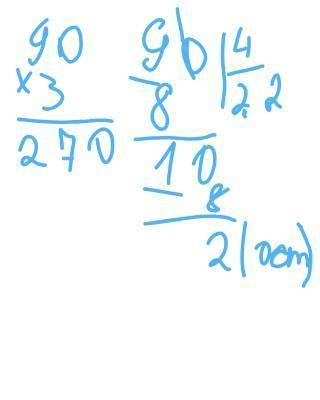 90
×3
270
90 | 4
− 8 | 2,2
10
− 8
2 (ост)